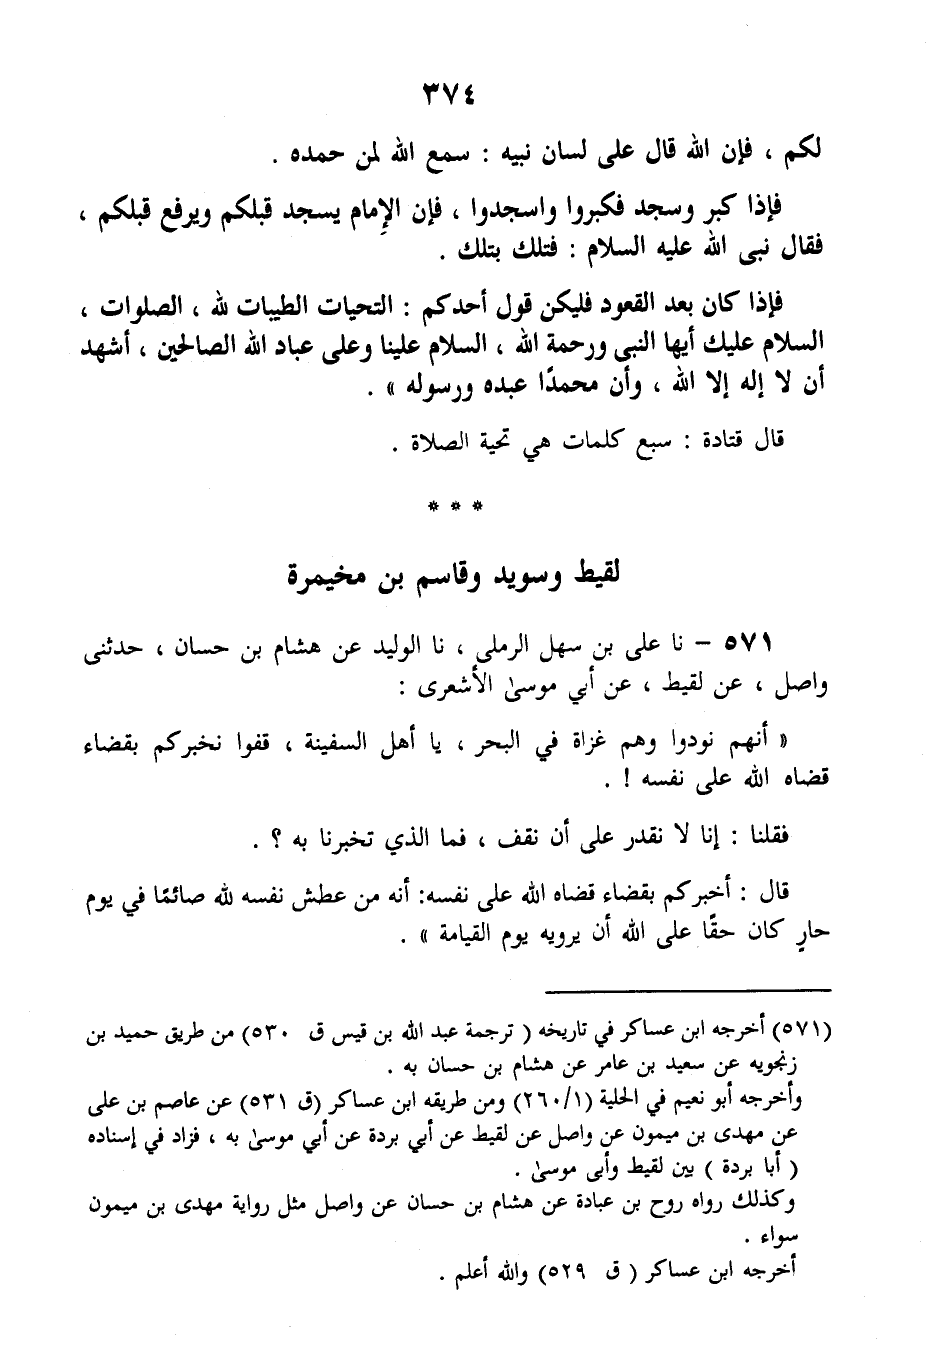 ٣٧٤
لكم ، فإن الله قال على لسان نبيه : سمع الله لمن حمده .
فإذا كبر وسجد فكبروا واسجدوا ، فإن الإِمام يسجد قبلكم ويرفع قبلكم ،
فقال نبى الله عليه السلام : فتلك بتلك .
فإذا كان بعد القعود فليكن قول أحدكم : التحيات الطيبات لله ، الصلوات ،
السلام عليك أيها النبى ورحمة الله ، السلام علينا وعلى عباد الله الصالحين ، أشهد
أن لا إله إلا الله ، وأن محمدًا عبده ورسوله » .
قال قتادة : سبع كلمات هي تحية الصلاة .
* * *
لقيط وسويد وقاسم بن مخيمرة
٥٧١ – نا على بن سهل الرملى ، نا الوليد عن هشام بن حسان ، حدثنى
واصل ، عن لقيط ، عن أبي موسىٰ الأشعرى :
« أنهم نودوا وهم غزاة في البحر ، يا أهل السفينة ، قفوا نخبركم بقضاء
قضاه الله على نفسه ! .
فقلنا : إنا لا نقدر على أن نقف ، فما الذي تخبرنا به ؟ .
قال : أخبركم بقضاء قضاه الله على نفسه: أنه من عطش نفسه لله صائمًا في يوم
حارٍ كان حقًا على الله أن يرويه يوم القيامة » .
(٥٧١) أخرجه ابن عساكر في تاريخه ( ترجمة عبد الله بن قيس ق ٥٣٠) من طريق حميد بن
زنجويه عن سعيد بن عامر عن هشام بن حسان به .
وأخرجه أبو نعيم في الحلية (٢٦٠/١) ومن طريقه ابن عساكر (ق ٥٣١) عن عاصم بن على
عن مهدى بن ميمون عن واصل عن لقيط عن أبي بردة عن أبي موسىٰ به ، فزاد في إسناده
( أبا بردة ) بين لقيط وأبى موسىٰ .
وكذلك رواه روح بن عبادة عن هشام بن حسان عن واصل مثل رواية مهدى بن ميمون
سواء .
أخرجه ابن عساكر ( ق ٥٢٩) والله أعلم .